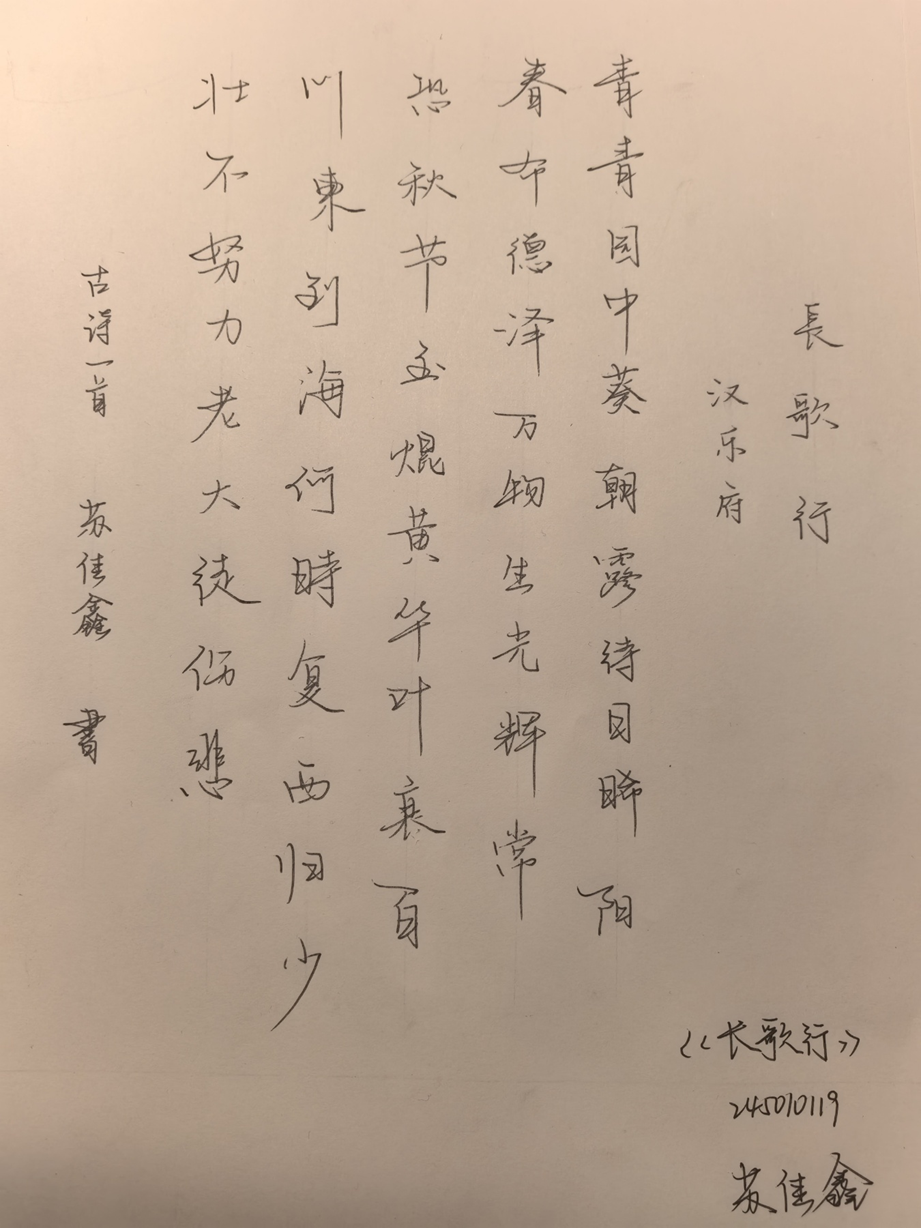 長歌行
汉乐府
青青园中葵朝露待日晞阳
春布德泽万物生光辉常
恐秋节至焜黄华叶衰百
川東到海何時复西归少
壮不努力老大徒伤悲
古诗一首 苏佳鑫 書
《长歌行》
245010119
苏佳鑫